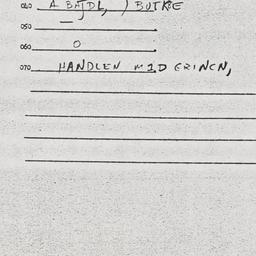 040 A BAJDL, ) BUTKE
050 —
060 O
070 HANDLEN MID ERINEN,